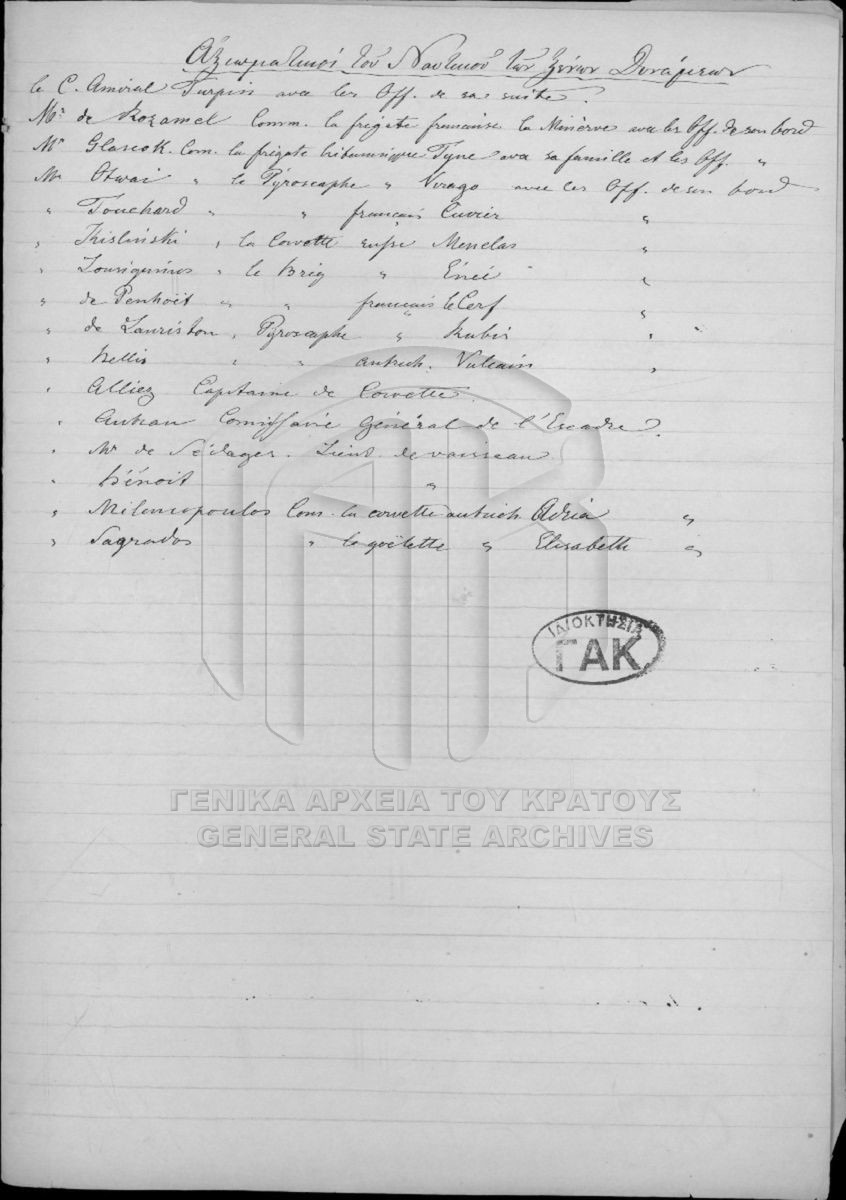 Ἀξιωματικοί τοῦ Ναυτικοῦ τῶν ξένων Δυνάμεων
le C. Amiral Turpin avec les Off. de sa suite.
Mr. de Rozamel Comm. la frégate française la Minerve avec les Off. de son bord
Mr Glascok. Com. la frégate britannique Tyne avec sa famille et les Off. "
Mr Otwai " le Pyroscaphe " Virago avec les Off. de son bord
" Touchard " " français Cuvier "
" Kislinski " la Corvette russe Menelas "
" le Brig " Enée "
" de Penhoët " " français le Cerf "
" de Lauriston " Pyroscaphe " Rubis "
" " " autrich. Vulcain "
" Alliez Capitaine de Corvette.
" Comissaire Général de l'Escadre.
" Mr de Lieut. de vaisseau
" Bénoit "
" Miloncopoulos Com. la corvette autrich. Adria "
" Sagrados " la goëlette " Elisabeth "
ΙΔΙΟΚΤΗΣΙΑ
ΓΑΚ
ΓΕΝΙΚΑ ΑΡΧΕΙΑ ΤΟΥ ΚΡΑΤΟΥΣ
GENERAL STATE ARCHIVES